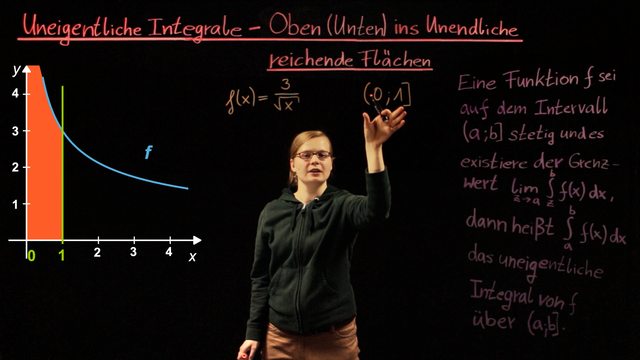 Uneigentliche Integrale – Oben (Unten) ins Unendliche
reichende Flächen
y
4
3
2
1
0
1
2
3
4
x
f
f(x) = 3/√x
(0;1]
Eine Funktion f sei
auf dem Intervall
(a;b] stetig und es
existiere der Grenz-
wert lim z→a ∫ z b f(x) dx,
dann heißt ∫ a b f(x) dx
das uneigentliche
Integral von f
über (a;b].